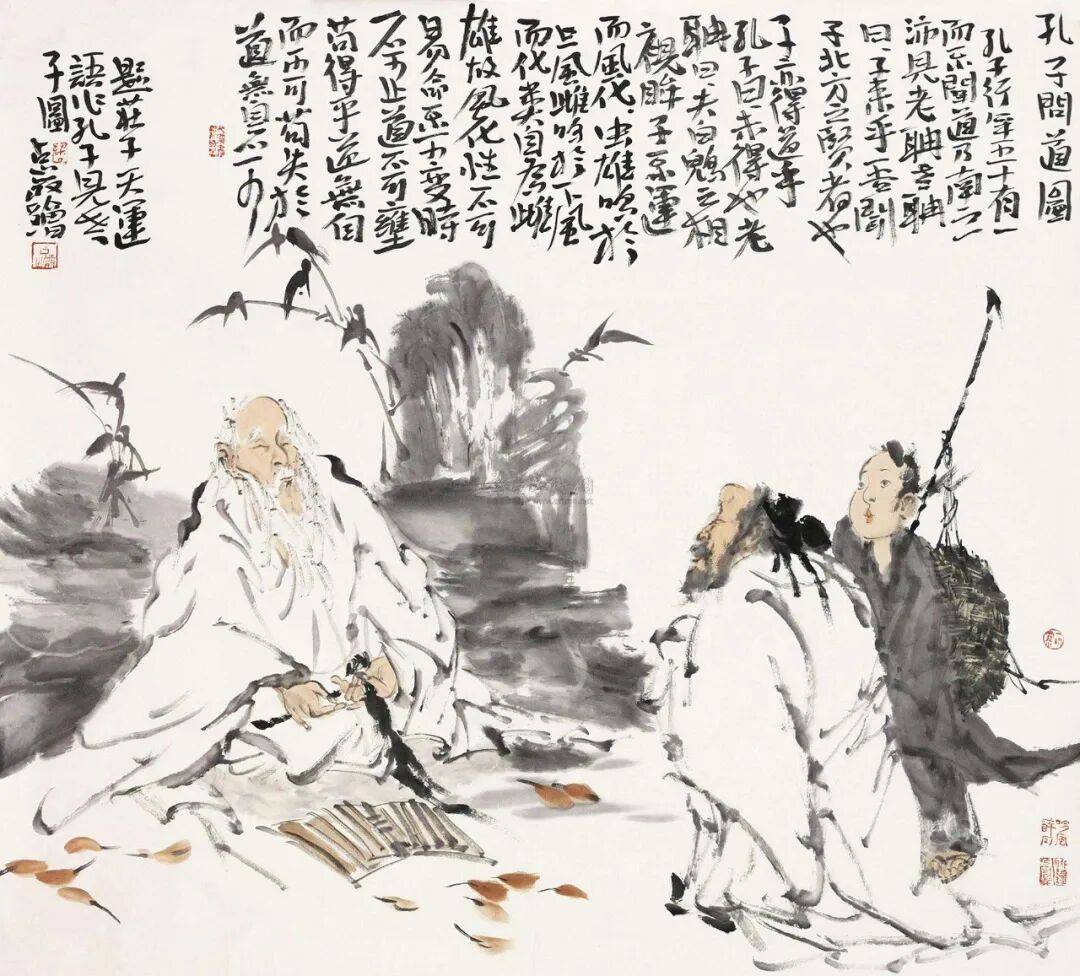 孔子問道圖
孔子行年五十有一
而不聞道乃南之
沛見老聃老聃
曰子來乎吾聞
子北方之賢者也
子亦得道乎
孔子曰未得也老
聃曰夫白鶂之相
視眸子不運
而風化虫雄鳴於
上風雌鳴於下風
而化類自為雌
雄故風化性不可
易命不可變時
不可止道不可壅
苟得乎道無自
而不可苟失於
道無自而可
題莊子天運
語作孔子見老
子圖 繪